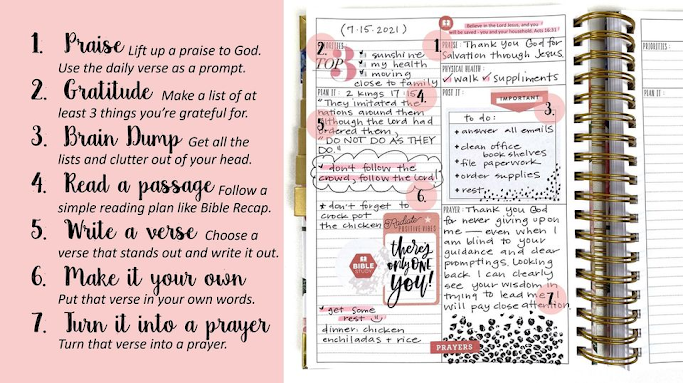 1. Praise Lift up a praise to God.
Use the daily verse as a prompt.
2. Gratitude Make a list of at
least 3 things you're grateful for.
3. Brain Dump Get all the
lists and clutter out of your head.
4. Read a passage Follow a
simple reading plan like Bible Recap.
5. Write a verse Choose a
verse that stands out and write it out.
6. Make it your own
Put that verse in your own words.
7. Turn it into a prayer
Turn that verse into a prayer.
(7.15.2021)
2.
TOP 3
✓ i sunshine
✓ i my health
✓ i moving
close to family
PLAN IT: 2 kings 17:15
4.
"They imitated the
nations around them
5.
although the Lord had
ordered them,
"DO NOT DO AS THEY
DO."
* don't follow the
crowd, follow the Lord!
6.
* don't forget to
crock pot
the chicken
Radiate
POSITIVE VIBES
BIBLE
STUDY
there's
only ONE
you!
* get some
rest
dinner: chicken
enchiladas + rice
Believe in the Lord Jesus, and you
will be saved - you and your household. Acts 16:31
1.
PRAISE: Thank you God for
Salvation through Jesus.
PHYSICAL HEALTH:
✓ walk ✓ suppliments
POST IT:
IMPORTANT
3.
to do:
+ answer all emails
+ clean office
book shelves
+ file paperwork
+ order supplies
+ rest
PRAYER: Thank you God
for never giving upon
me — even when I
am blind to your
guidance and clear
promptings. Looking
back I can clearly
see your wisdom in
trying to lead me. I
7.
will pay close attention.
PRAYERS
PRIORITIES:
PLAN IT: